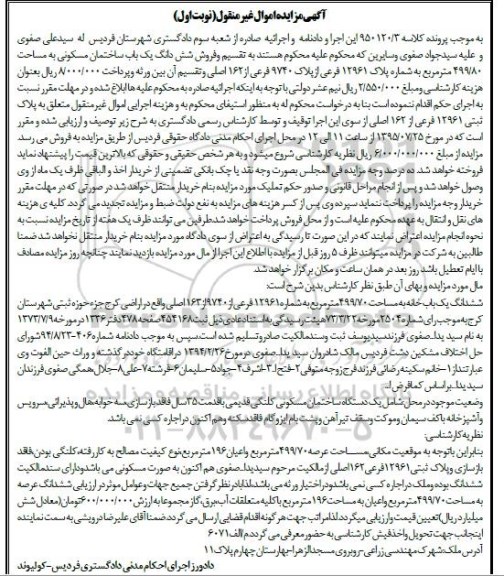 آگهی مزایده اموال غیر منقول (نوبت اول)
به موجب پرونده کلاسه ۹۵۰۱۲۰/۳ این اجرا و دادنامه و اجرائیه صادره از شعبه سوم دادگستری شهرستان فردیس له سیدعلی صفوی
و علیه سیدجواد صفوی وسایرین که محکوم علیه محکوم هستند به تقسیم و فروش شش دانگ یک باب ساختمان مسکونی به مساحت
۴۹۹/۸۰ مترمربع به شماره پلاک ۱۲۹۶۱ فرعی از پلاک ۹۷۴۰ فرعی از ۱۶۲ اصلی و تقسیم آن بین ورثه و پرداخت ۸/۰۰۰/۰۰۰ ریال بعنوان
هزینه کارشناسی و مبلغ ۲/۵۵۰/۰۰۰ ریال نیم عشر دولتی با توجه به اینکه اجرائیه صادره به محکوم علیه ها ابلاغ شده و در مهلت مقرر نسبت
به اجرای حکم اقدام ننموده است بنا به درخواست محکوم له به منظور استیفای محکوم به و هزینه اجرایی اموال غیر منقول متعلق به پلاک
ثبتی ۱۲۹۶۱ فرعی از ۱۶۲ اصلی از سوی این اجرا توقیف و توسط کارشناس رسمی دادگستری به شرح زیر توصیف و ارزیابی شده و مقرر
است که در مورخ ۱۳۹۵/۰۷/۲۵ از ساعت ۱۱ الی ۱۲ در محل اجرای احکام مدنی دادگاه حقوقی فردیس از طریق مزایده به فروش می رسد
مزایده از مبلغ ۶/۰۰۰/۰۰۰/۰۰۰ ریال نظریه کارشناسی شروع میشود و به هر شخص حقیقی و حقوقی که بالاترین قیمت را پیشنهاد نماید
فروخته خواهد شد. ده درصد وجه مزایده فی المجلس بصورت وجه نقد یا چک بانکی تضمینی از خریدار اخذ و الباقی ظرف یک ماه از وی
وصول خواهد شد و پس از انجام مراحل قانونی و صدور حکم تملیک مورد مزایده بنام خریدار منتقل خواهد شد در صورتی که در مهلت مقرر
خریدار وجه مزایده را پرداخت ننماید سپرده وی پس از کسر هزینه های مزایده به نفع دولت ضبط و مزایده تجدید می گردد. کلیه ی هزینه
های نقل و انتقال به عهده محکوم علیه است و از محل فروش پرداخت خواهد شد طرفین می توانند ظرف یک هفته از تاریخ مزایده نسبت به
نحوه انجام مزایده اعتراض نمایند که در این صورت تا رسیدگی به اعتراض از سوی دادگاه مورد مزایده بنام خریدار منتقل نخواهد شد ضمنا
طالبین به شرکت در مزایده میتوانند ظرف ۵ روز قبل از مزایده با اطلاع این اجرا از مال مورد مزایده بازدید نمایند چنانچه روز مزایده مصادف
با ایام تعطیل باشد روز بعد در همان ساعت و مکان برگزار خواهد شد.
مال مورد مزایده و بهای آن طبق نظر کارشناس بدین شرح است:
ششدانگ یک باب خانه به مساحت ۴۹۹/۷۰ مترمربع به شماره ۱۲۹۶۱ فرعی از ۹۷۴۰ از ۱۶۳ اصلی واقع در اراضی کرج جزء حوزه ثبتی شهرستان
کرج به موجب رای شماره ۲۵۰۴ مورخه ۷۳/۳/۲۲ هیئت رسیدگی به اسناد عادی ذیل ثبت ۴۵۲۱۶۸ صفحه ۴۷۸ دفتر ۱۳۳۶ در مورخه ۱۳۷۳/۷/۹
به نام سید یدا... صفوی فرزند سید یوسف ثبت و سند مالکیت صادر و تسلیم شده است سپس به موجب دادنامه شماره ۴۰۶-۹۴/۸/۲۳ شورای
حل اختلاف مشکین دشت فردیس مالک شادروان سید یدا... صفوی در مورخ ۱۳۹۴/۲/۲۶ در اقامتگاه خود در گذشته و وراث حین الفوت وی
عبارتند از ۱-خانم سکینه رضائی فرزند فرج زوجه متوفی ۲-فتح ا... ۳-اشرف ۴-جواد ۵-سلیمان ۶-فرشته ۷-علی ۸-جلال همگی صفوی فرزندان
سید یدا... براساس کدفرض ا...
وضعیت موجود در محل شامل یک دستگاه ساختمان مسکونی کلنگی قدیمی با قدمت ۳۵ سال فاقد بازسازی سه خوابه هال و پذیرائی سرویس
و آشپزخانه با کف سیمان و موکت و سقف تیرآهن و پشت بام ایزوگام فاقد سکنه و هم اکنون در اجاره کسی نمی باشد.
نظریه کارشناسی:
بنابراین با توجه به موقعیت مکانی، مساحت عرصه ۴۹۹/۷۰ مترمربع و اعیان ۱۹۶ مترمربع نوع کیفیت مصالح به کار رفته، کلنگی بودن، فاقد
بازسازی و پلاک ثبتی ۱۲۹۶۱ فرعی ۱۶۲ اصلی از مالکیت مرحوم سید یدا... صفوی هم اکنون به صورت مسکونی می باشد و دارای سند مالکیت
ششدانگ بوده و ملک در اجاره کسی نمی باشد و در اختیار ورثه می باشد لذا با در نظر گرفتن جمیع جهات و عوامل موثر در ارزیابی ششدانگ عرصه
به مساحت ۴۹۹/۷۰ مترمربع و اعیان به مساحت ۱۹۶ مترمربع با کلیه متعلقات آب، برق، گاز مجموعا به ارزش ۶۰۰/۰۰۰/۰۰۰ تومان (معادل شش
میلیارد ریال) تعیین قیمت و ارزیابی میگردد لذا مراتب جهت هرگونه اقدام قضایی ارسال می گردد ضمنا آقای علیرضا درویشی به سمت نماینده
اینجانب جهت تحویل و اخذ فیش کارشناسی به حضور معرفی می گردد. م/الف ۶۰۷۱
آدرس ملک: شهرک مهندسی زراعی-روبروی مسجد الزهرا-بهارستان چهارم پلاک ۱۱
دادورز اجرای احکام مدنی دادگستری فردیس-کولیوند
۰۲۱-۸۸۳۴۹۶۷۰-۵